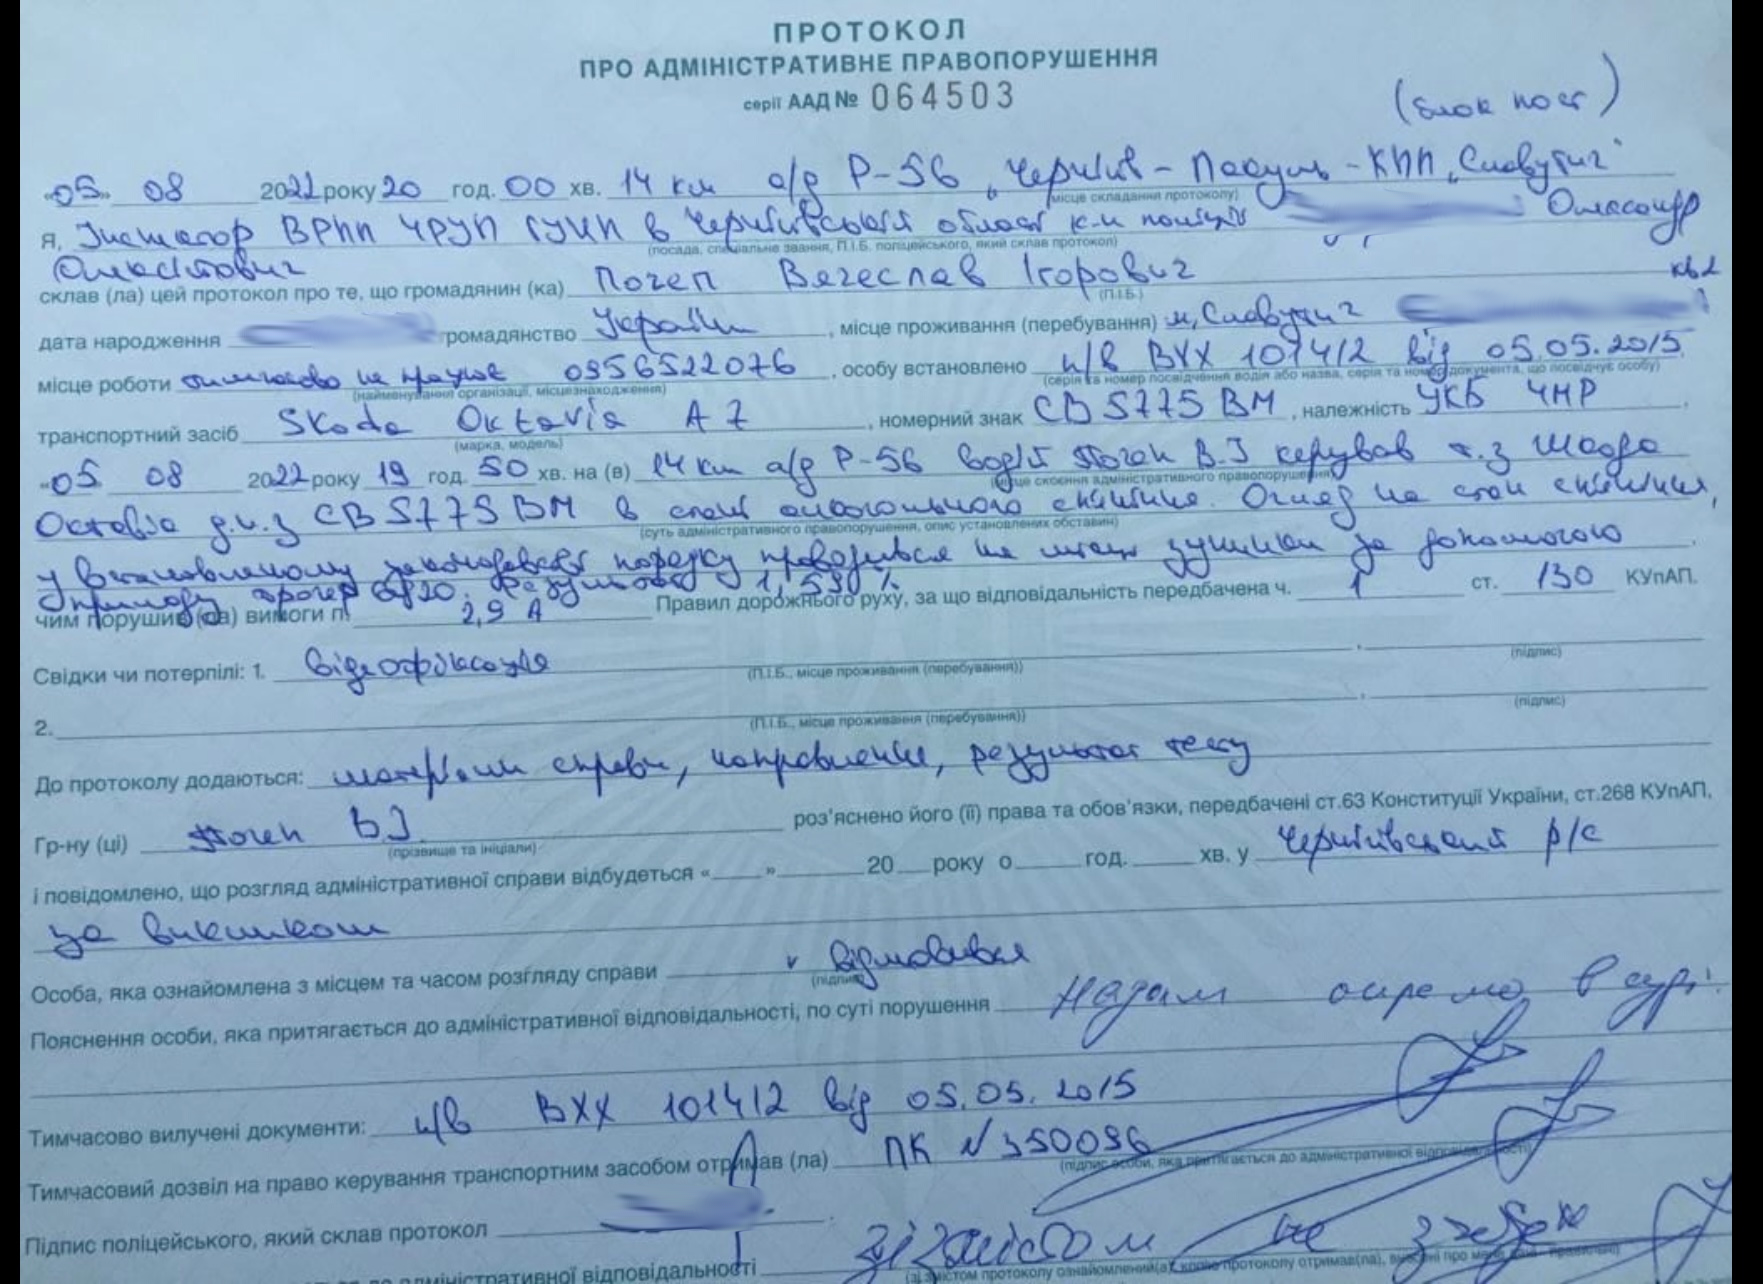 ПРОТОКОЛ
ПРО АДМІНІСТРАТИВНЕ ПРАВОПОРУШЕННЯ
серії ААД № 064503
(блок пост)
«05» 08 2022 року 20 год. 00 хв. 14 км а/д Р-56 „Чернігів - Пакуль - КПП „Славутич"
(місце складання протоколу)
Я, Інспектор ВРПП ЧРУП ГУНП в Чернігівській області к-н поліції Олександр
(посада, спеціальне звання, П.І.Б. поліцейського, який склав протокол)
склав (ла) цей протокол про те, що громадянин (ка) Почеп Вячеслав Ігорович
(П.І.Б.)
дата народження громадянство України, місце проживання (перебування) м, Славутич
місце роботи тимчасово не працює 0956522076, особу встановлено п/в ВХХ 101412 від 05.05.2015
(найменування організації, місцезнаходження) (серія та номер посвідчення водія або назва, серія та номер документа, що посвідчує особу)
транспортний засіб Skoda Oktavia A7, номерний знак СВ 5775 ВМ, належність УКБ ЧМР
(марка, модель)
«05 08 2022 року 19 год. 50 хв. на (в) 14 км а/д Р-56 водій Почеп В.І керував т.з Шкода
(місце скоєння адміністративного правопорушення)
Октавіа д.н.з СВ 5775 ВМ в стані алкогольного сп'яніння. Огляд на стан сп'яніння,
(суть адміністративного правопорушення, опис установлених обставин)
у встановленому законодавством порядку проводився на місці зупинки за допомогою
приладу Драгер 6820. Результат 1,59 ‰
чим порушив (ла) вимоги п. 2,9 А Правил дорожнього руху, за що відповідальність передбачена ч. 1 ст. 130 КУпАП.
Свідки чи потерпілі: 1. відеофіксація
(П.І.Б., місце проживання (перебування)) (підпис)
2.
(П.І.Б., місце проживання (перебування)) (підпис)
До протоколу додаються: матеріали справи, направлення, результат тесту
Гр-ну (ці) Почеп В.І роз'яснено його (її) права та обов'язки, передбачені ст.63 Конституції України, ст.268 КУпАП,
(прізвище та ініціали)
і повідомлено, що розгляд адміністративної справи відбудеться «___» 20 року о год. хв. у Чернігівський р/с
за викликом
Особа, яка ознайомлена з місцем та часом розгляду справи v відмовився
(підпис)
Пояснення особи, яка притягається до адміністративної відповідальності, по суті порушення Надам окремо в суді
Тимчасово вилучені документи: п/в ВХХ 101412 від 05.05.2015
Тимчасовий дозвіл на право керування транспортним засобом отримав (ла) ПК № 350096
(підпис особи, яка притягається до адміністративної відповідальності)
Підпис поліцейського, який склав протокол
адміністративної відповідальності зі змістом не згоден
(зі змістом протоколу ознайомлений(а), копію протоколу отримав(ла),